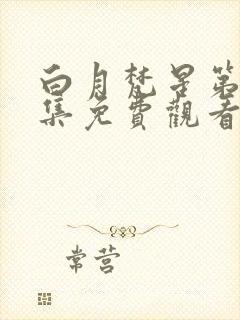 白月梵星第
集免費觀看
常营